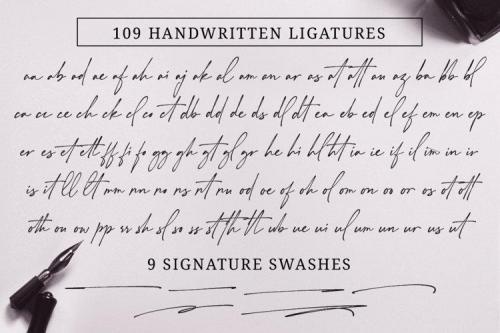 109 HANDWRITTEN LIGATURES
aa ab ad ae af ah ai aj ak al am an ar as at att au az ba bb bl
ca cc ce ch ck cl co ct db dd de ds dl dt ea eb ed el ef em en ep
er es et ett ff fi fo gg gh gt gl gr he hi hl ht ia ie if il im in ir
is it ll lt mm nn no ns nt nu od oe of oh ol om on oo or os ot ott
oth ou ow pp rr sh sl so ss st th tt ub ue ui ul um un ur us ut
9 SIGNATURE SWASHES